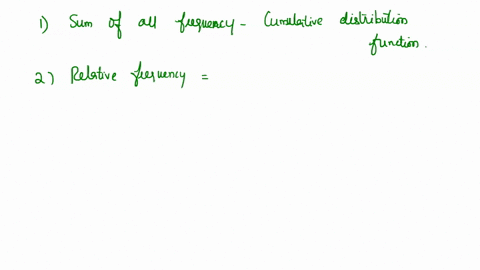 1) Sum of all frequency - Cumulative distribution
function.
2) Relative frequency =